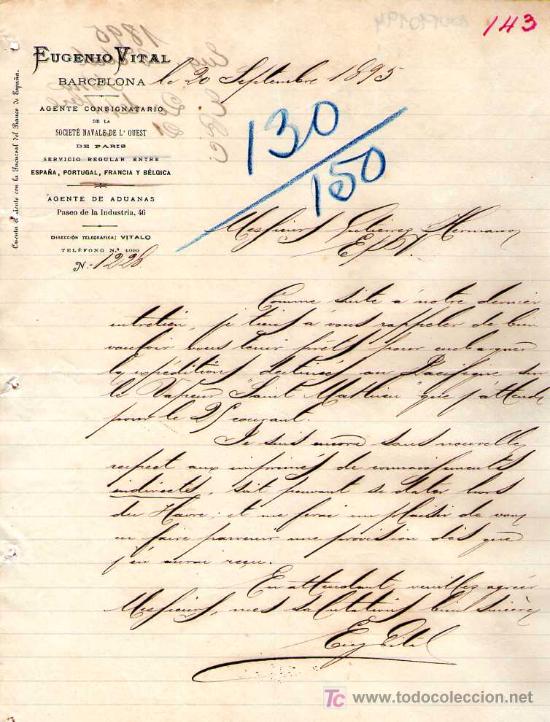 143
EUGENIO VITAL
BARCELONA
le 20 Septembre 1895
AGENTE CONSIGNATARIO
DE LA
SOCIETÉ NAVALE DE L'OUEST
DE PARIS
SERVICIO REGULAR ENTRE
ESPAÑA, PORTUGAL, FRANCIA Y BÉLGICA
AGENTE DE ADUANAS
Paseo de la Industria, 46
DIRECCIÓN TELEGRÁFICA: VITALO
TELÉFONO N.º
N.º 1228
Cuenta c/ con la Sucursal del Banco de España.
130
150
Messieurs Gutierrez Hermanos
E/V.
Comme suite à notre dernier
entretien, je tiens à vous rappeler de bien
vouloir vous tenir prêts pour embarquer
les expéditions destinées au Pacifique sur
le Vapeur "Saint Mathieu" que j'attends
pour le 25 courant.
Je suis encore sans nouvelles
respect aux imprimés de connaissements
indirects, soit pouvant se dater lors
du Havre; et me ferai un plaisir de vous
en faire parvenir une provision dès que
j'en aurai reçu.
En attendant veuillez agréer
Messieurs, mes salutations bien sincères
Eug Vital
TC www.todocoleccion.net